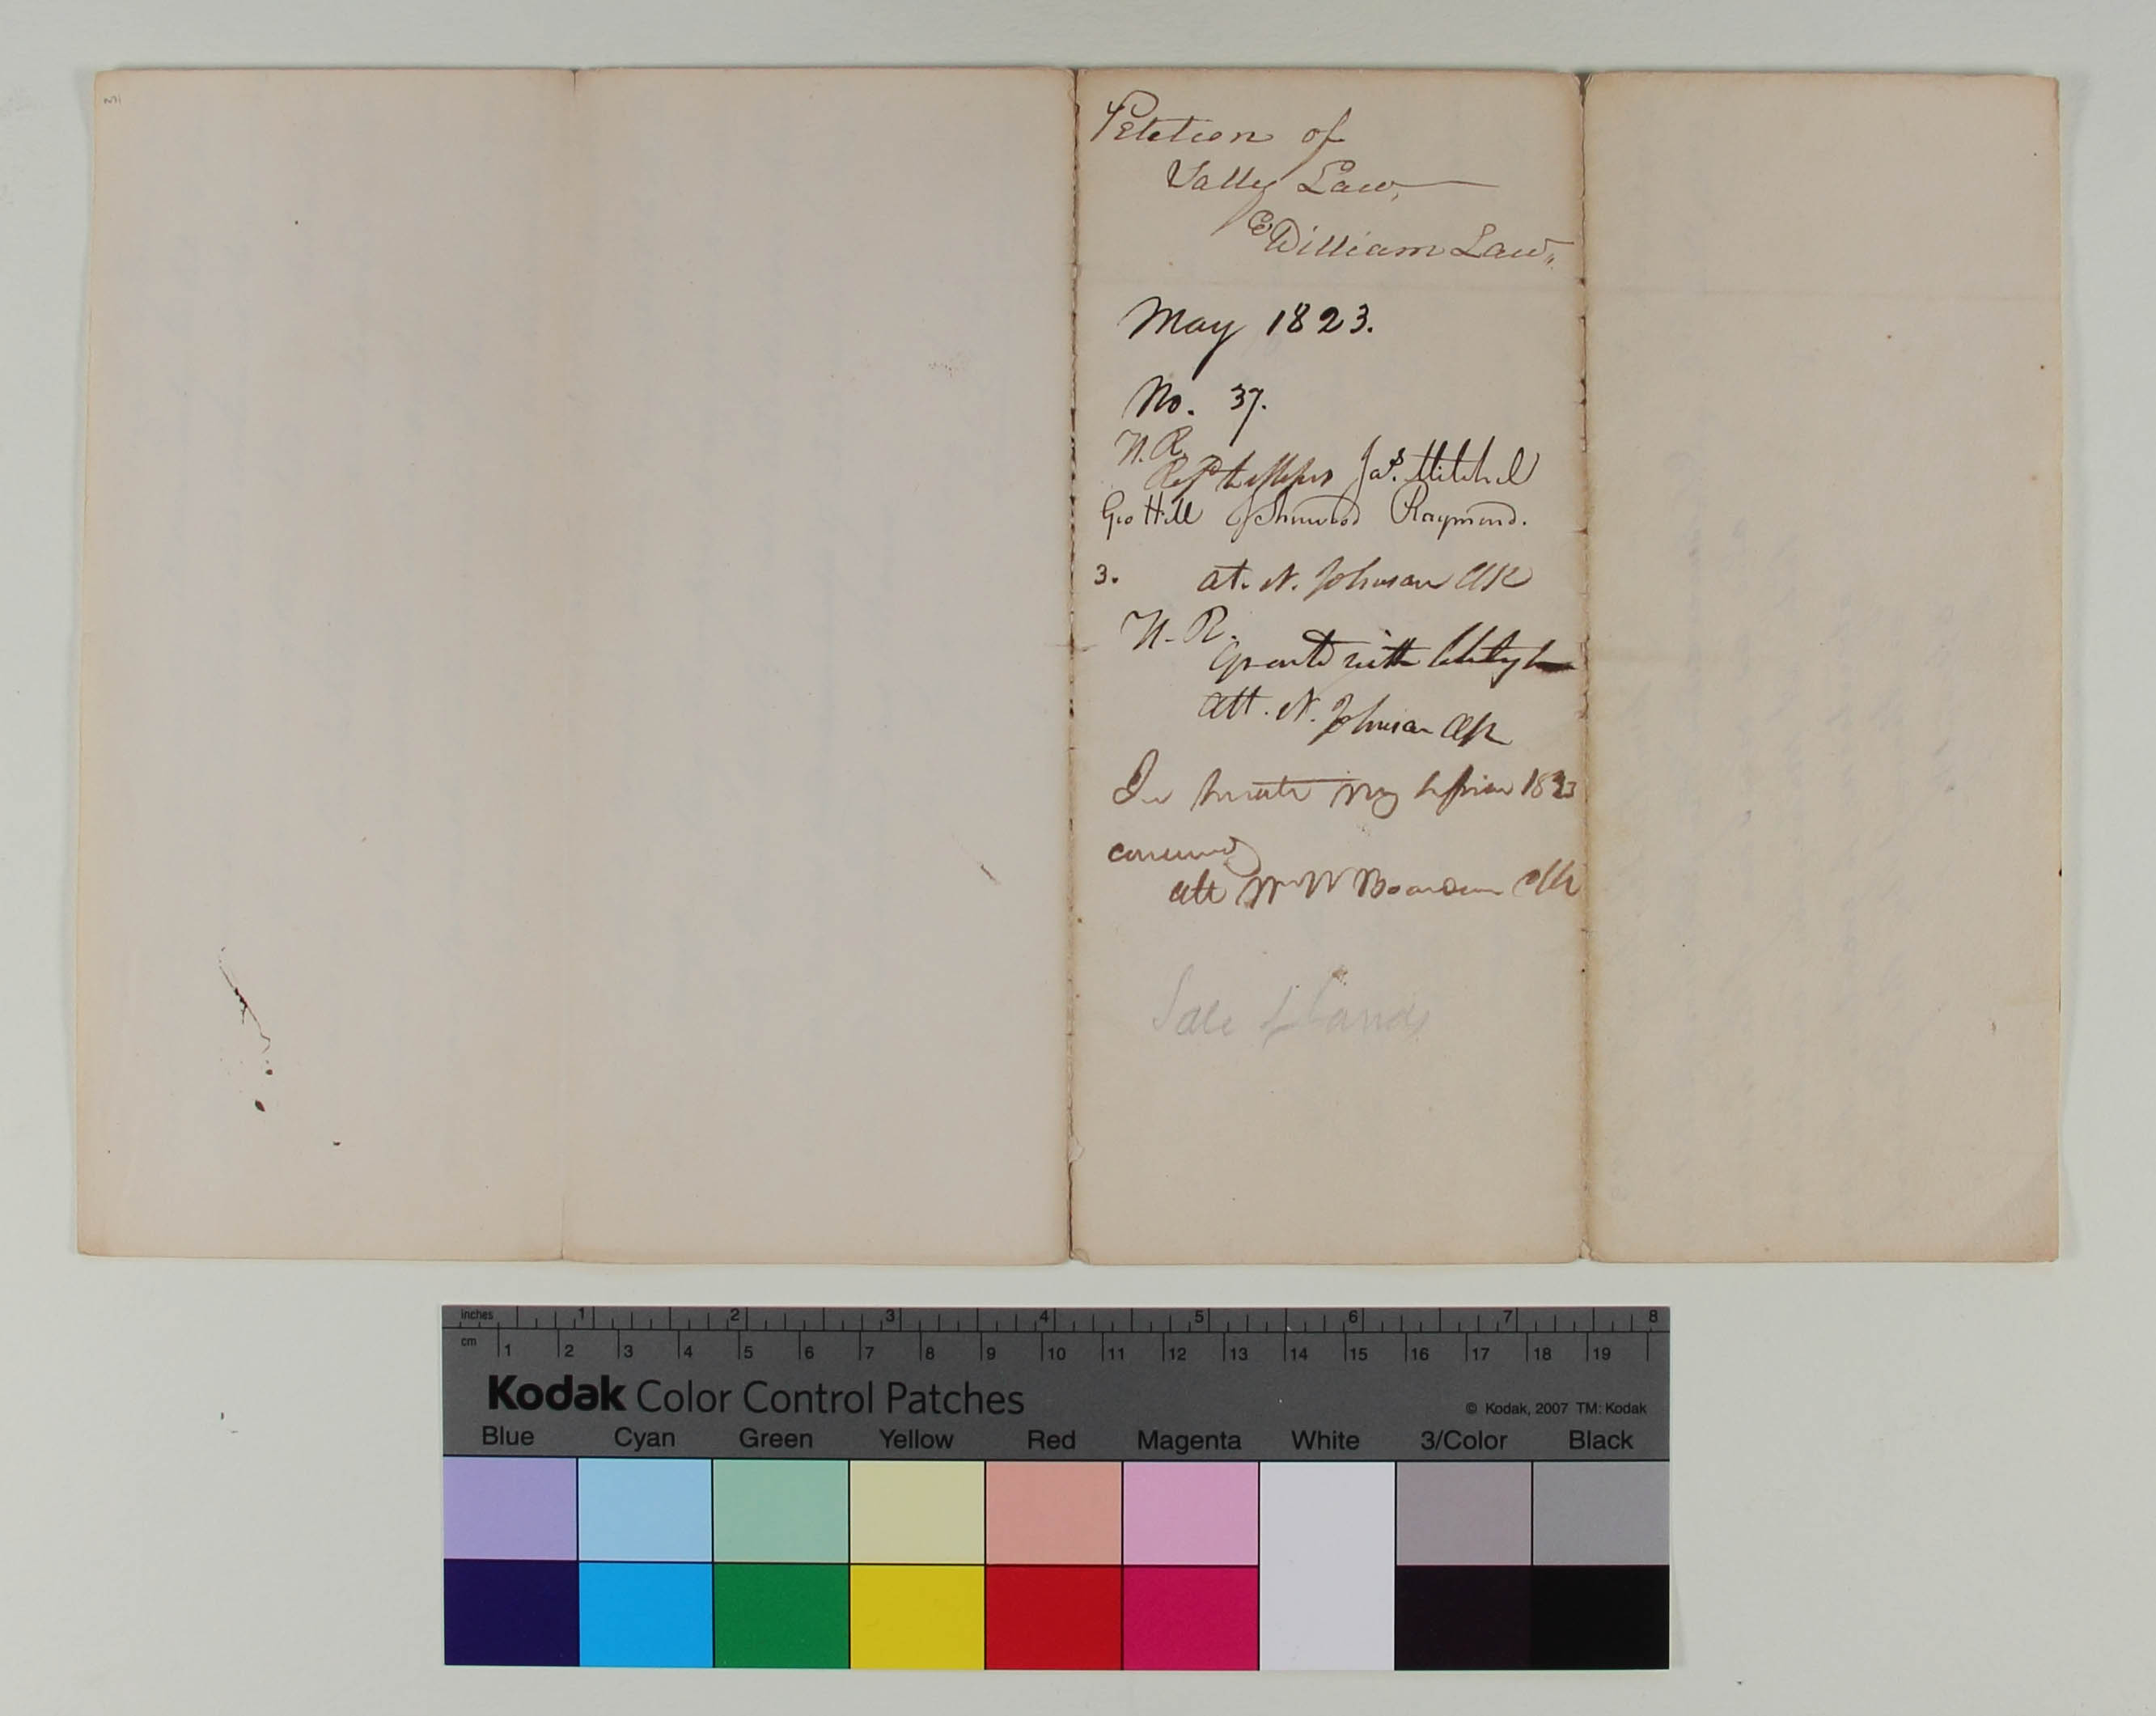 Petition of
Sally Law,
& William Law,
May 1823.
No. 37.
H. R.
Ref to Messrs Jas. Mitchel
Geo Hill Sherwood Raymond.
3. at. N. Johnson Clk
H. R.
Granted with
att. N. Johnson Clk
In Senate May Session 1823
concurred
att Wm W Boardman Clk
Sale of Lands
inches 1 2 3 4 5 6 7 8
cm 1 2 3 4 5 6 7 8 9 10 11 12 13 14 15 16 17 18 19
Kodak Color Control Patches
© Kodak, 2007 TM: Kodak
Blue Cyan Green Yellow Red Magenta White 3/Color Black